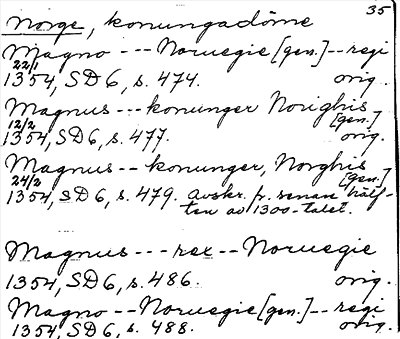 35
Norge, konungadöme
Magno --- Noruegie [gen.] -- regi
22/1
1354, SD 6, s. 474. orig.
Magnus --- konunger Norighis
12/2 [gen.]
1354, SD 6, s. 477. orig.
Magnus -- konunger, Norghis
24/2 [gen.]
1354, SD 6, s. 479. Avskr. fr. senare hälf-
ten av 1300-talet.
Magnus --- rex -- Noruegie
1354, SD 6, s. 486. orig.
Magno -- Noruegie [gen.] -- regi
1354, SD 6, s. 488. orig.